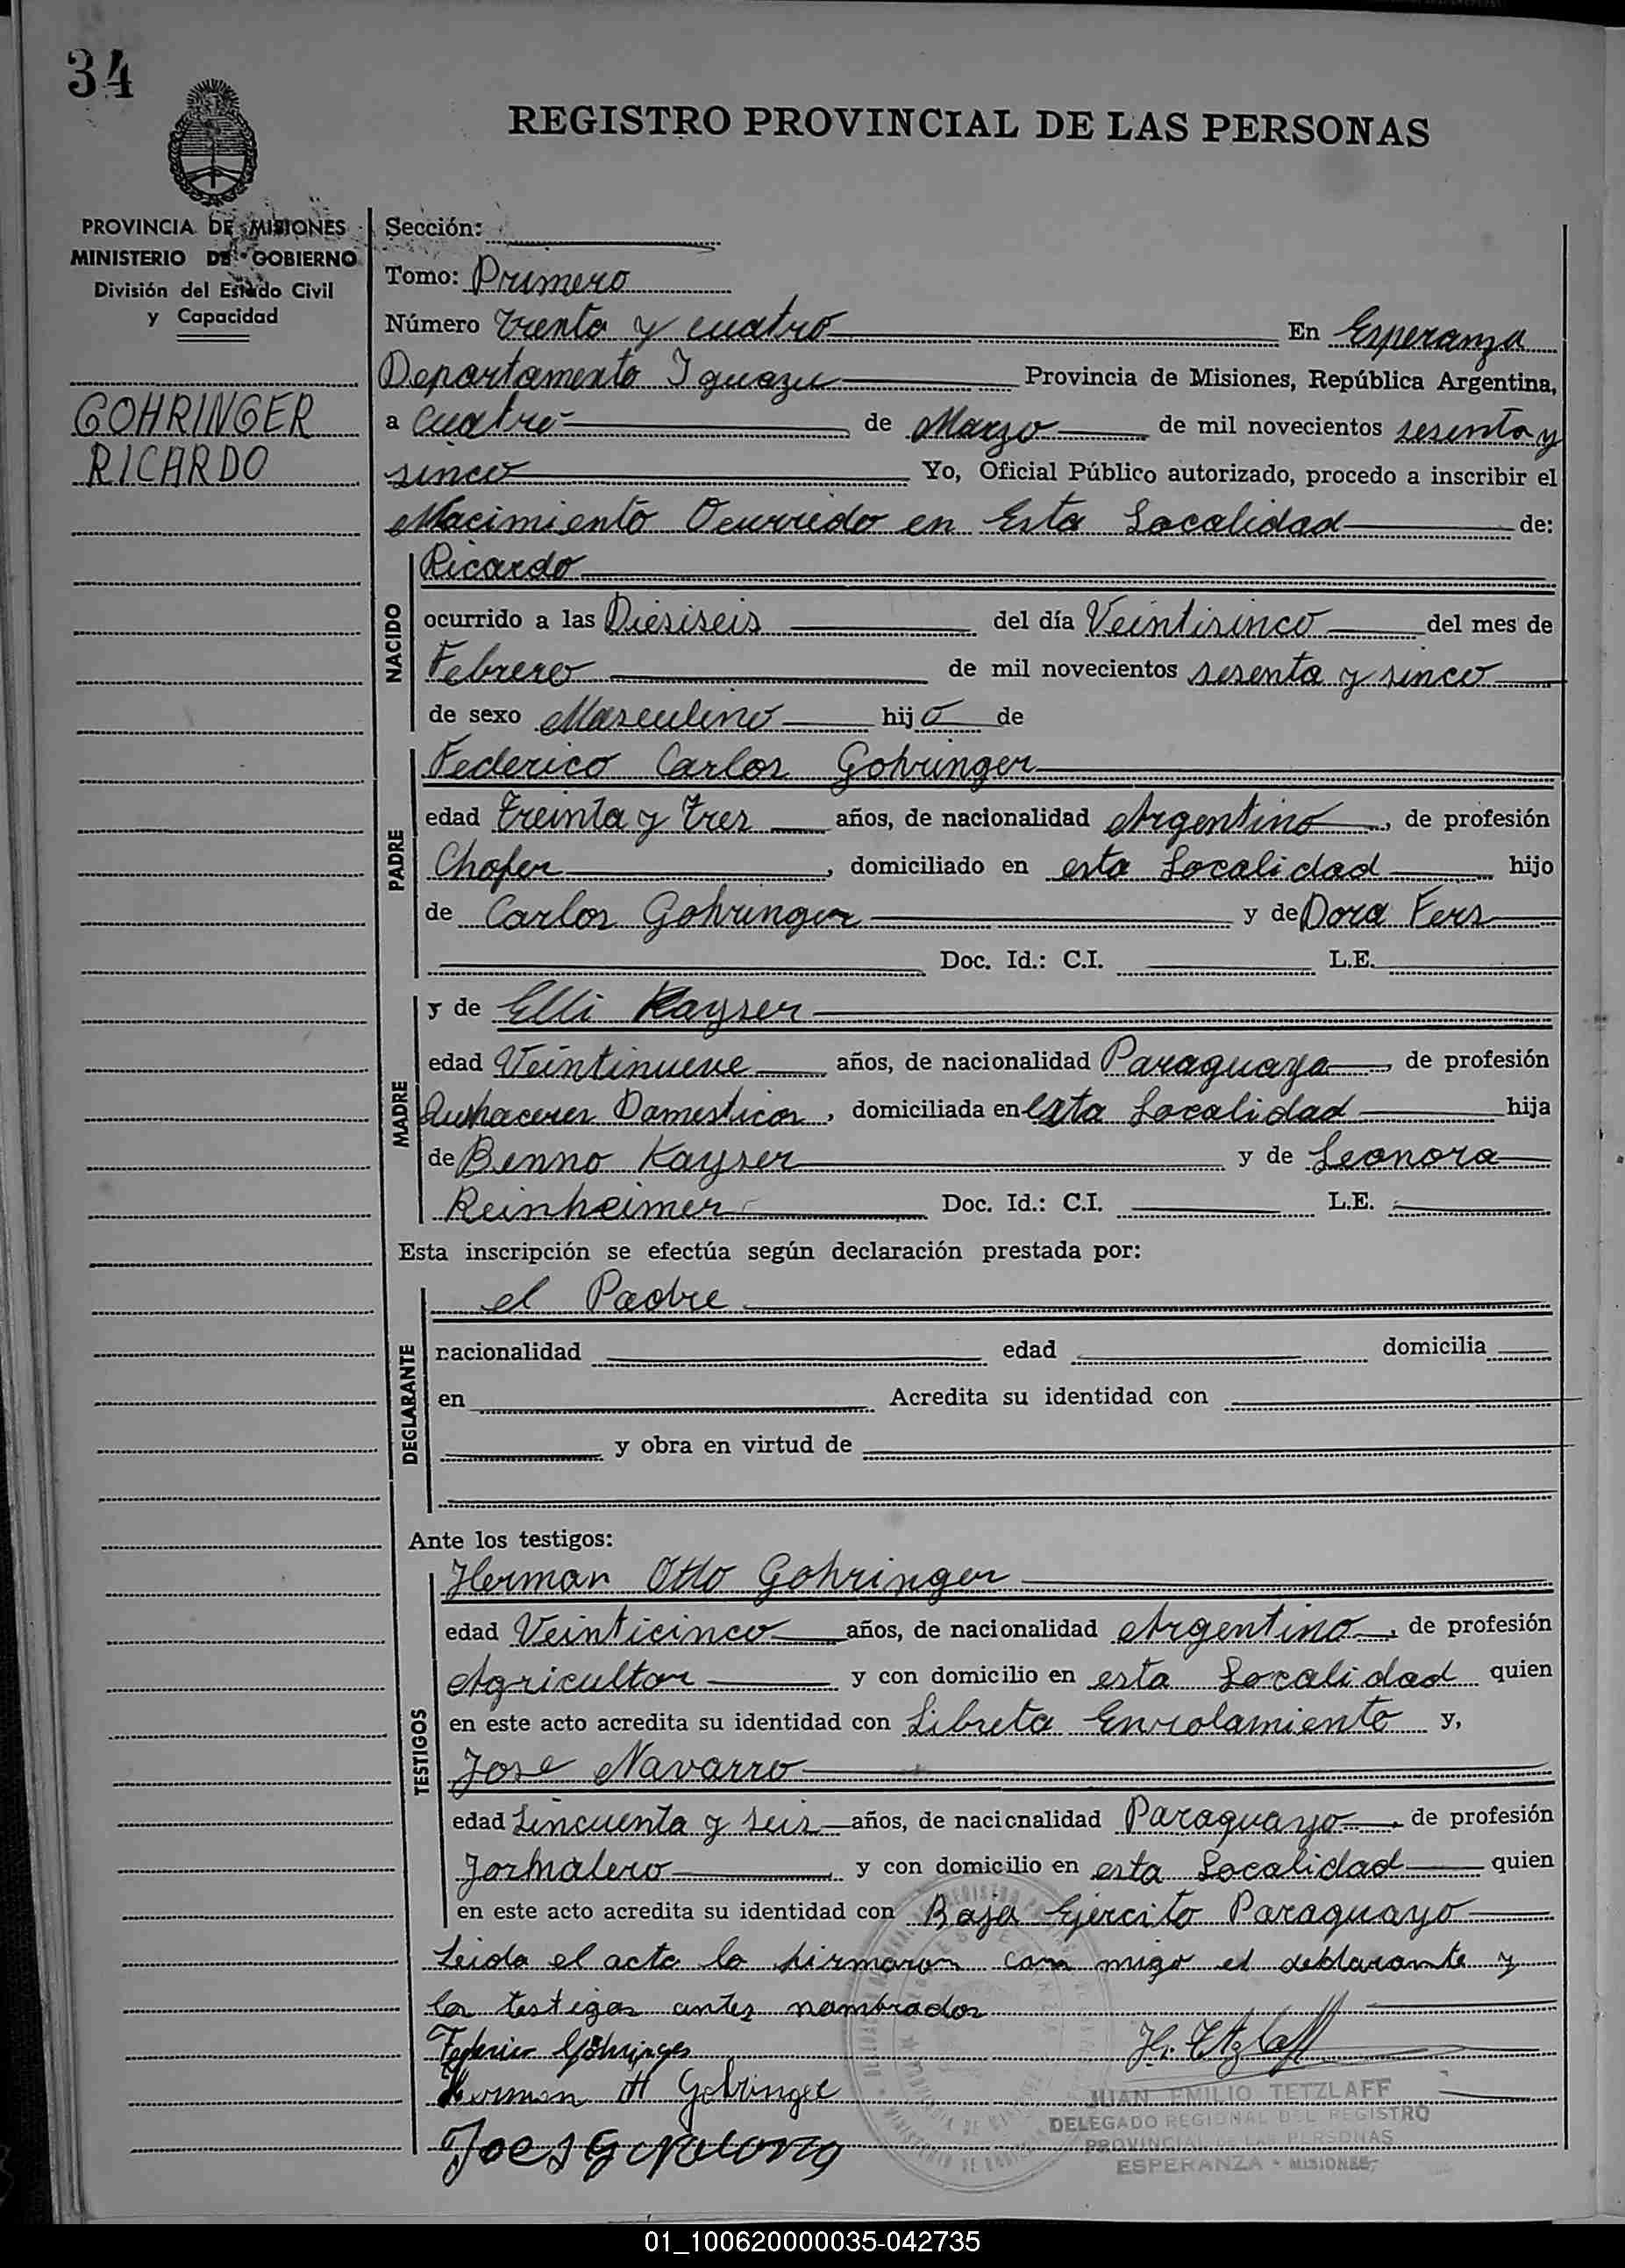 34
REGISTRO PROVINCIAL DE LAS PERSONAS
PROVINCIA DE MISIONES
MINISTERIO DE GOBIERNO
División del Estado Civil
y Capacidad
GOHRINGER
RICARDO
Sección:
Tomo: Primero
Número trenta y cuatro En Esperanza
Departamento Iguazu Provincia de Misiones, República Argentina,
a cuatro de Marzo de mil novecientos sesenta y
sinco Yo, Oficial Público autorizado, procedo a inscribir el
Nacimiento Ocurrido en Esta Localidad de:
NACIDO
Ricardo
ocurrido a las Diesiseis del día Veintisinco del mes de
Febrero de mil novecientos sesenta y sinco
de sexo Masculino hijo de
PADRE
Federico Carlos Gohringer
edad treinta y tres años, de nacionalidad Argentino, de profesión
Chofer, domiciliado en esta Localidad hijo
de Carlos Gohringer y de Dora Fers
Doc. Id.: C.I. L.E.
MADRE
y de Elli Kayser
edad Veintinueve años, de nacionalidad Paraguaya, de profesión
Quehaceres Domesticos, domiciliada en Esta Localidad hija
de Benno Kayser y de Leonora
Reinheimer Doc. Id.: C.I. L.E.
Esta inscripción se efectúa según declaración prestada por:
DEGLARANTE
el Padre
nacionalidad edad domicilia
en Acredita su identidad con
y obra en virtud de
Ante los testigos:
TESTIGOS
Herman Otto Gohringer
edad Veinticinco años, de nacionalidad Argentino, de profesión
Agricultor y con domicilio en esta Localidad quien
en este acto acredita su identidad con Libreta Enrolamiento y,
Jose Navarro
edad Sincuenta y seis años, de nacicnalidad Paraguayo, de profesión
Jornalero y con domicilio en esta Localidad quien
en este acto acredita su identidad con Baja Ejercito Paraguayo
Leida el acta la firmaron con migo el declarante y
los testigos antes nombrados
Federico Göhringer
Herman H Gohringer
JUAN EMILIO TETZLAFF
DELEGADO REGIONAL DEL REGISTRO
PROVINCIAL DE LAS PERSONAS
ESPERANZA - MISIONES
01_100620000035-042735